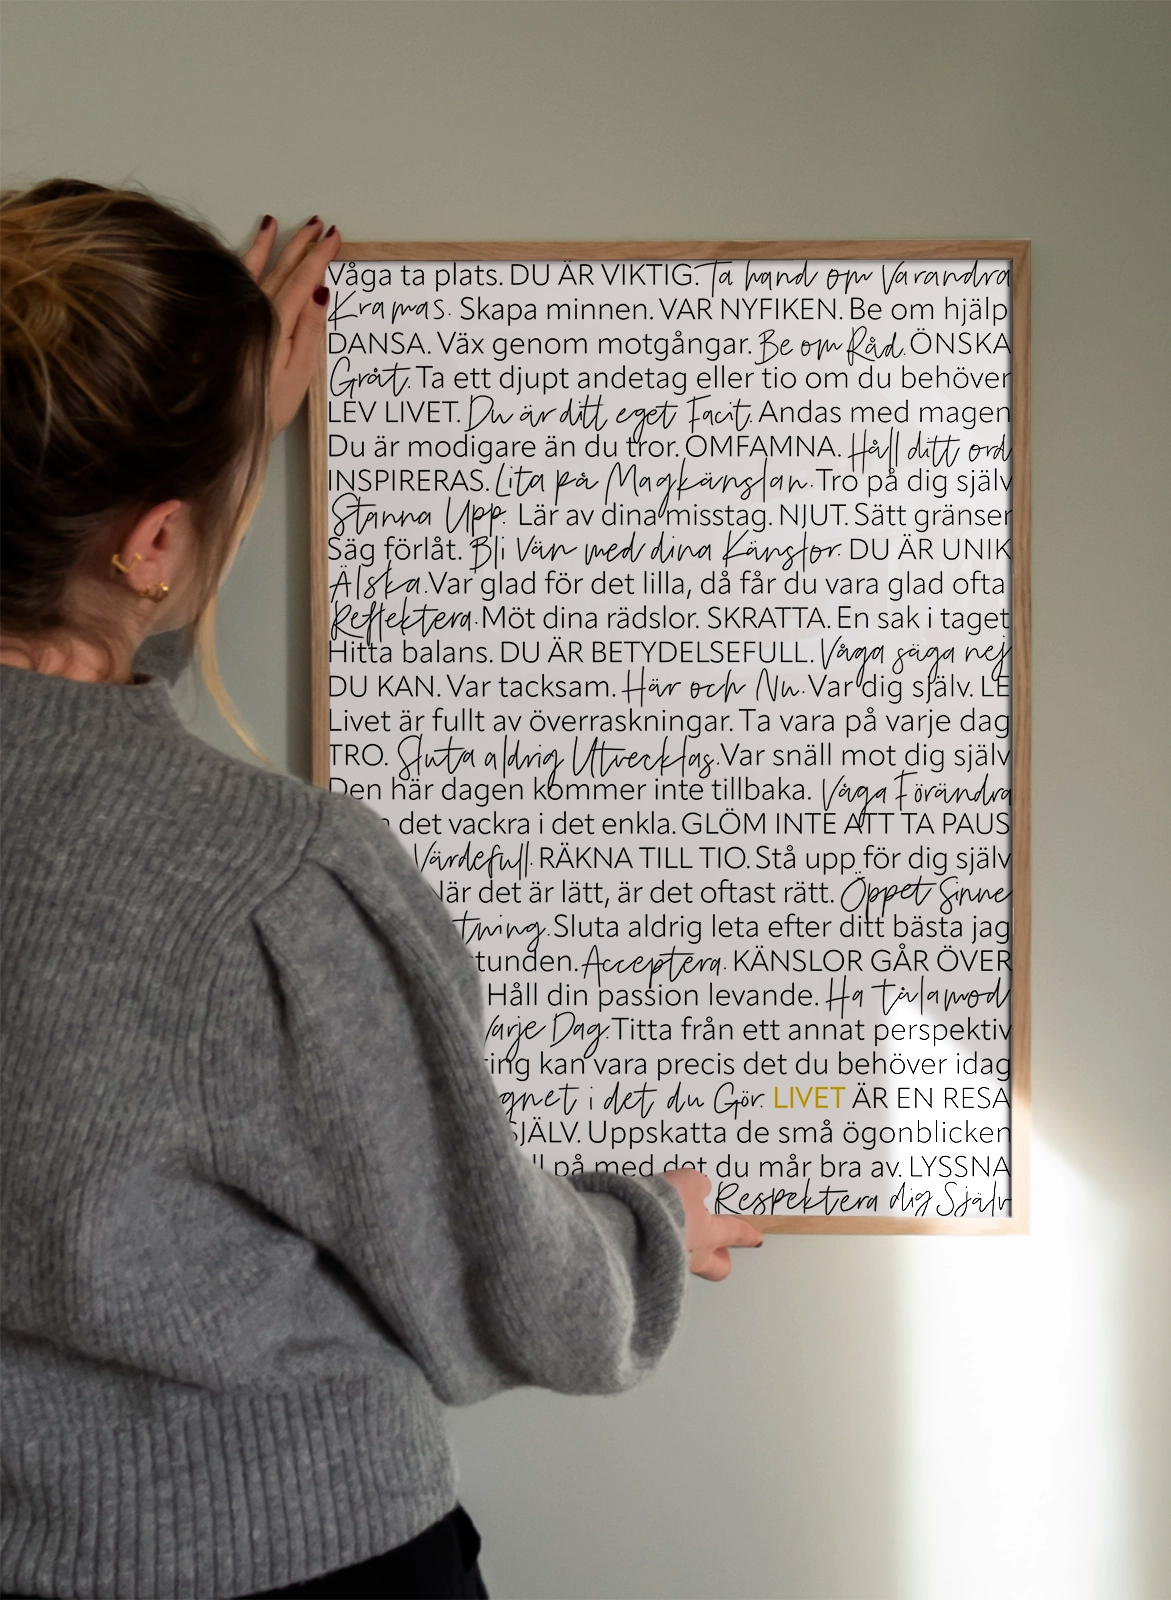 Våga ta plats. DU ÄR VIKTIG. Ta hand om Varandra
Kramas. Skapa minnen. VAR NYFIKEN. Be om hjälp
DANSA. Väx genom motgångar. Be om Råd. ÖNSKA
Gråt. Ta ett djupt andetag eller tio om du behöver
LEV LIVET. Du är ditt eget Facit. Andas med magen
Du är modigare än du tror. OMFAMNA. Håll ditt ord
INSPIRERAS. Lita på Magkänslan. Tro på dig själv
Stanna Upp. Lär av dina misstag. NJUT. Sätt gränser
Säg förlåt. Bli Vän med dina Känslor. DU ÄR UNIK
Älska. Var glad för det lilla, då får du vara glad ofta
Reflektera. Möt dina rädslor. SKRATTA. En sak i taget
Hitta balans. DU ÄR BETYDELSEFULL. Våga säga nej
DU KAN. Var tacksam. Här och Nu. Var dig själv. LE
Livet är fullt av överraskningar. Ta vara på varje dag
TRO. Sluta aldrig Utvecklas. Var snäll mot dig själv
Den här dagen kommer inte tillbaka. Våga Förändra
det vackra i det enkla. GLÖM INTE ATT TA PAUS
Värdefull. RÄKNA TILL TIO. Stå upp för dig själv
När det är lätt, är det oftast rätt. Öppet Sinne
tning. Sluta aldrig leta efter ditt bästa jag
stunden. Acceptera. KÄNSLOR GÅR ÖVER
Håll din passion levande. Ha tålamod
Varje Dag. Titta från ett annat perspektiv
ring kan vara precis det du behöver idag
gnet i det du Gör. LIVET ÄR EN RESA
SJÄLV. Uppskatta de små ögonblicken
ll på med det du mår bra av. LYSSNA
Respektera dig Själv